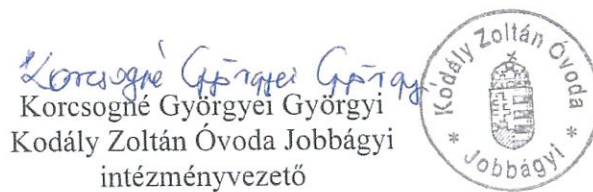 Korcsogné Györgyei Györgyi
Korcsogné Györgyei Györgyi
Kodály Zoltán Óvoda Jobbágyi
intézményvezető
Kodály Zoltán Óvoda
* Jobbágyi *